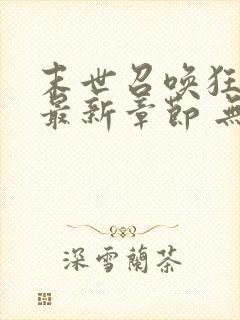 末世召唤狂
最新章节 无
深雪蘭茶